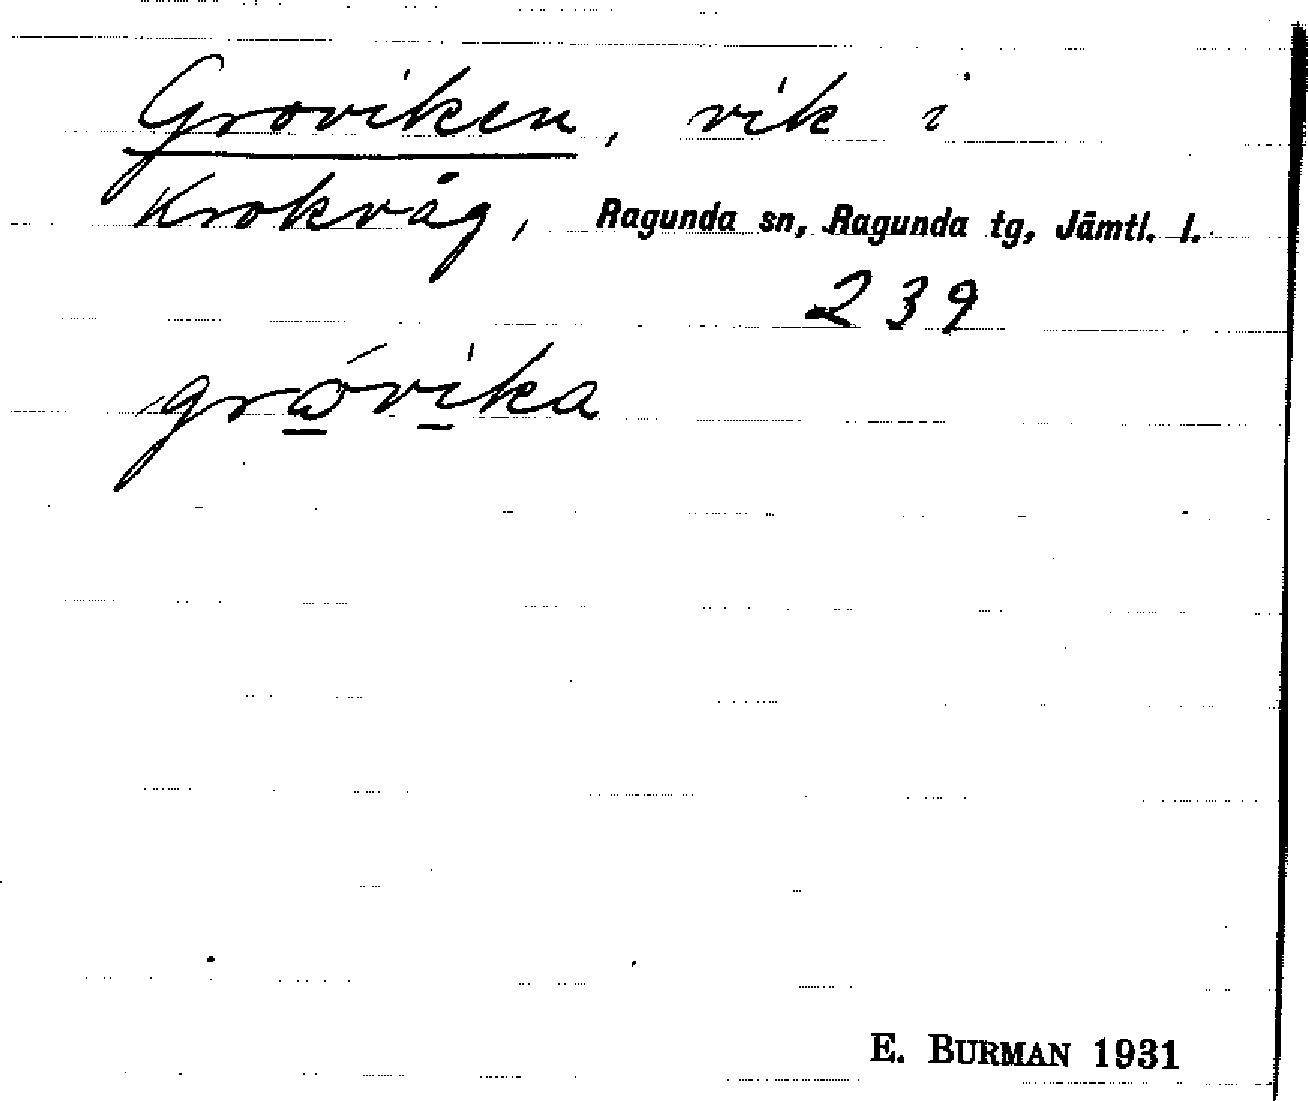 Groviken, vik i
Krokvåg, Ragunda sn, Ragunda tg, Jämtl. l.
239
gróvika
E. BURMAN 1931